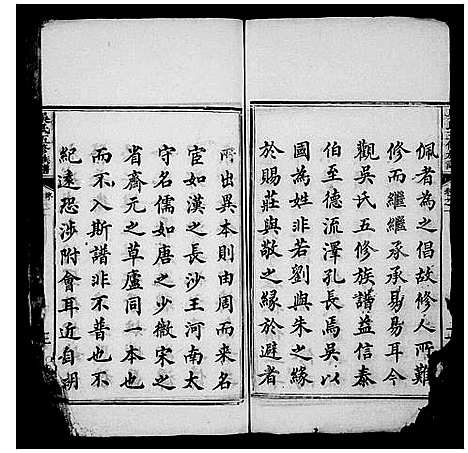 佩者為之倡故修人所難
修而繼繼承承易易耳今
觀吳氏五修族譜益信泰
伯至德流澤孔長焉吳以
國為姓非若劉與朱之緣
於賜莊與敬之緣於避者
所出異本則由周而來名
宦如漢之長沙王河南太
守名儒如唐之少微宋之
省齋元之草廬同一本也
而不入斯譜非不普也不
紀遠恐涉附會耳近自胡
吳氏五修族譜